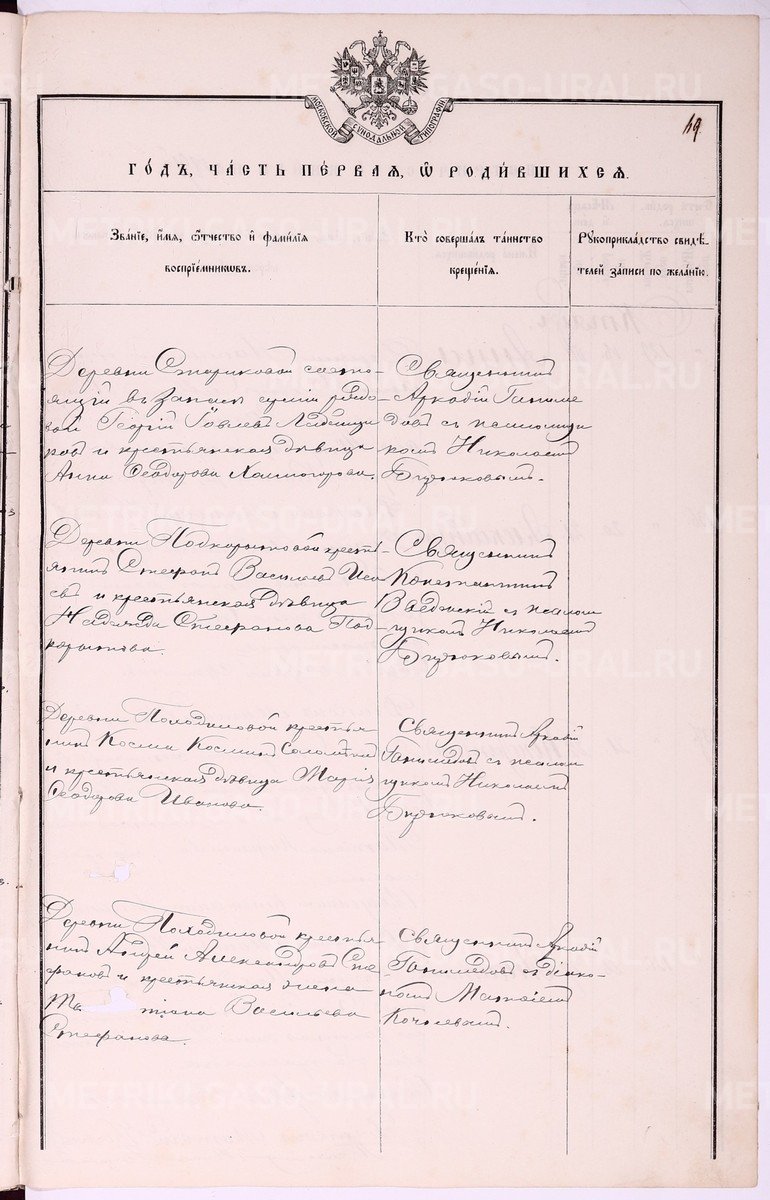 МОСКОВСКОЙ СѴНОДАЛЬНОЙ ТИПОГРАФІИ
49
ГО́ДЪ, ЧА́СТЬ ПЕ́РВАЯ, Ѿ РОДИ́ВШИХСЯ.
Зва́нїе, и҆́мя, ѻ҆́тчество и҆ фами́лїя
воспрїе́мникѡвъ.
Кто̀ соверша́лъ та́инство
креще́нїя.
Рꙋкоприкла́дство свидѣ́-
телей за́писи по жела́нїю.
Деревни Стариковой состо-
ящій въ запасѣ арміи рядо-
вой Георгій Іовлевъ
ровъ и крестьянская дѣвица
Анна Ѳеодорова Холмогорова.
Священникъ
Аркадій Ганиме
довъ съ псаломщи
комъ Николаемъ
Бирюковымъ.
Деревни Подкорытовой кресть-
янинъ Стефанъ Васильевъ Иса
евъ и крестьянская дѣвица
Надежда Стефанова Под-
корытова.
Священникъ
Константинъ
Введенскій съ псалом
щикомъ Николаемъ
Бирюковымъ.
Деревни Походиловой крестья-
нинъ Косма Косминъ
и крестьянская дѣвица Марія
Ѳеодорова Иванова.
Священникъ Аркадій
Ганимедовъ съ псалом
щикомъ Николаемъ
Бирюковымъ.
Деревни Походиловой крестья-
нинъ Андрей Александровъ Сте
фановъ и крестьянская жена
Та тіана Васильева
Стефанова.
Священникъ Аркадій
Ганимедовъ съ діако-
номъ Матѳіемъ
Кочневымъ.
METRIKI.GASO-URAL.RU